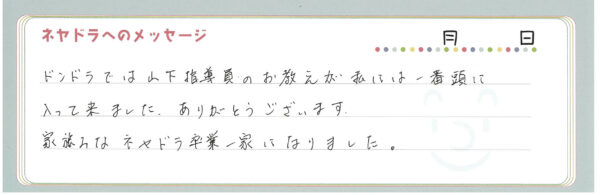 ネヤドラへのメッセージ
月 日
ドンドラでは山下指導員のお教えが私には一番頭に
入って来ました。ありがとうございます。
家族みな ネヤドラ卒業一家になりました。